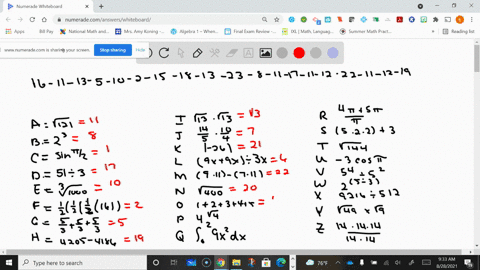 Numerade Whiteboard
numerade.com/answers/whiteboard/
Apps
Bill Pay
National Math and...
Mrs. Amy Korning -...
Algebra 1 - When...
Final Exam Review -...
IXL | Math, Languag...
Reading list
www.numerade.com is sharing your screen.
Stop sharing
16-11-13-5-10-2-15-18-13-23-8-11-17-11-12-22-11-12-19
A = √121 = 11
B = 2³ = 8
C = sin π/2 = 1
D = 51÷3 = 17
E = ³√1000 = 10
F = ½(½(½(16) = 2
G = 5/3+5/3+5/3 = 5
H = 4205-4186 = 19
I √13 · √13 = √3
J 14/5 · 10/4 = 7
K |-26| = 21
L (9x+9x)÷3x = 6
M (9·11)-(7·11) = 22
N √400 = 20
O 1+2+3+4+
P 4^√4
Q ∫₀² 9x² dx
R 4π+5π/π
S (5·2·2)+3
T √144
U -3 cos π
V 5⁴÷5²
W 2^(5-3)
X 9216÷512
Y √49 × √9
Z 14·14·14/14·14
Type here to search
76°F
9:33 AM
8/20/2021